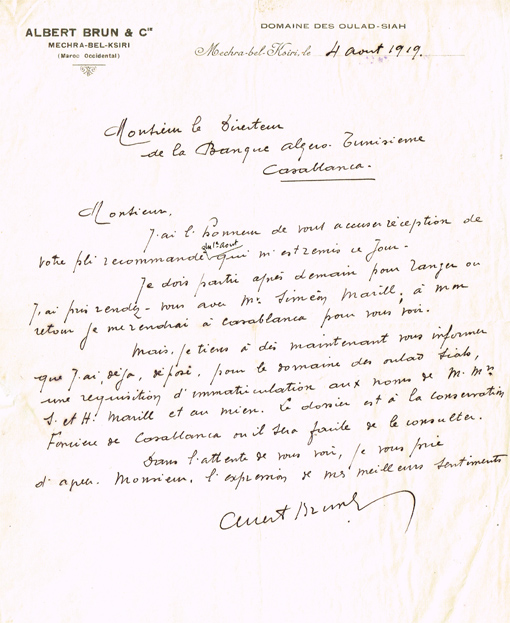 ALBERT BRUN & Cie
MECHRA-BEL-KSIRI
(Maroc Occidental)
DOMAINE DES OULAD-SIAH
Mechra-bel-Ksiri, le 4 aout 1919.
Monsieur le Directeur
de la Banque Algero-Tunisienne
Casablanca.
Monsieur,
J'ai l'honneur de vous accuser réception de
du 1er aout
votre pli recommandé qui m'est remis ce jour.
Je dois partir après demain pour Tanger ou
J'ai pris rendez-vous avec Mr. Siméon Marill; à mon
retour je me rendrai à Casablanca pour vous voir.
Mais, je tiens à dès maintenant vous informer
que J'ai, déja, déposé, pour le domaine des oulad Siah,
une requisition d'immatriculation aux noms de M. Mrs
S. et H. Marill et au mien. Le dossier est à la conservation
Foncière de Casablanca ou il sera facile de le consulter.
Dans l'attente de vous voir, je vous prie
d'agréer. Monsieur, l'expression de mes meilleurs sentiments
Albert Brun